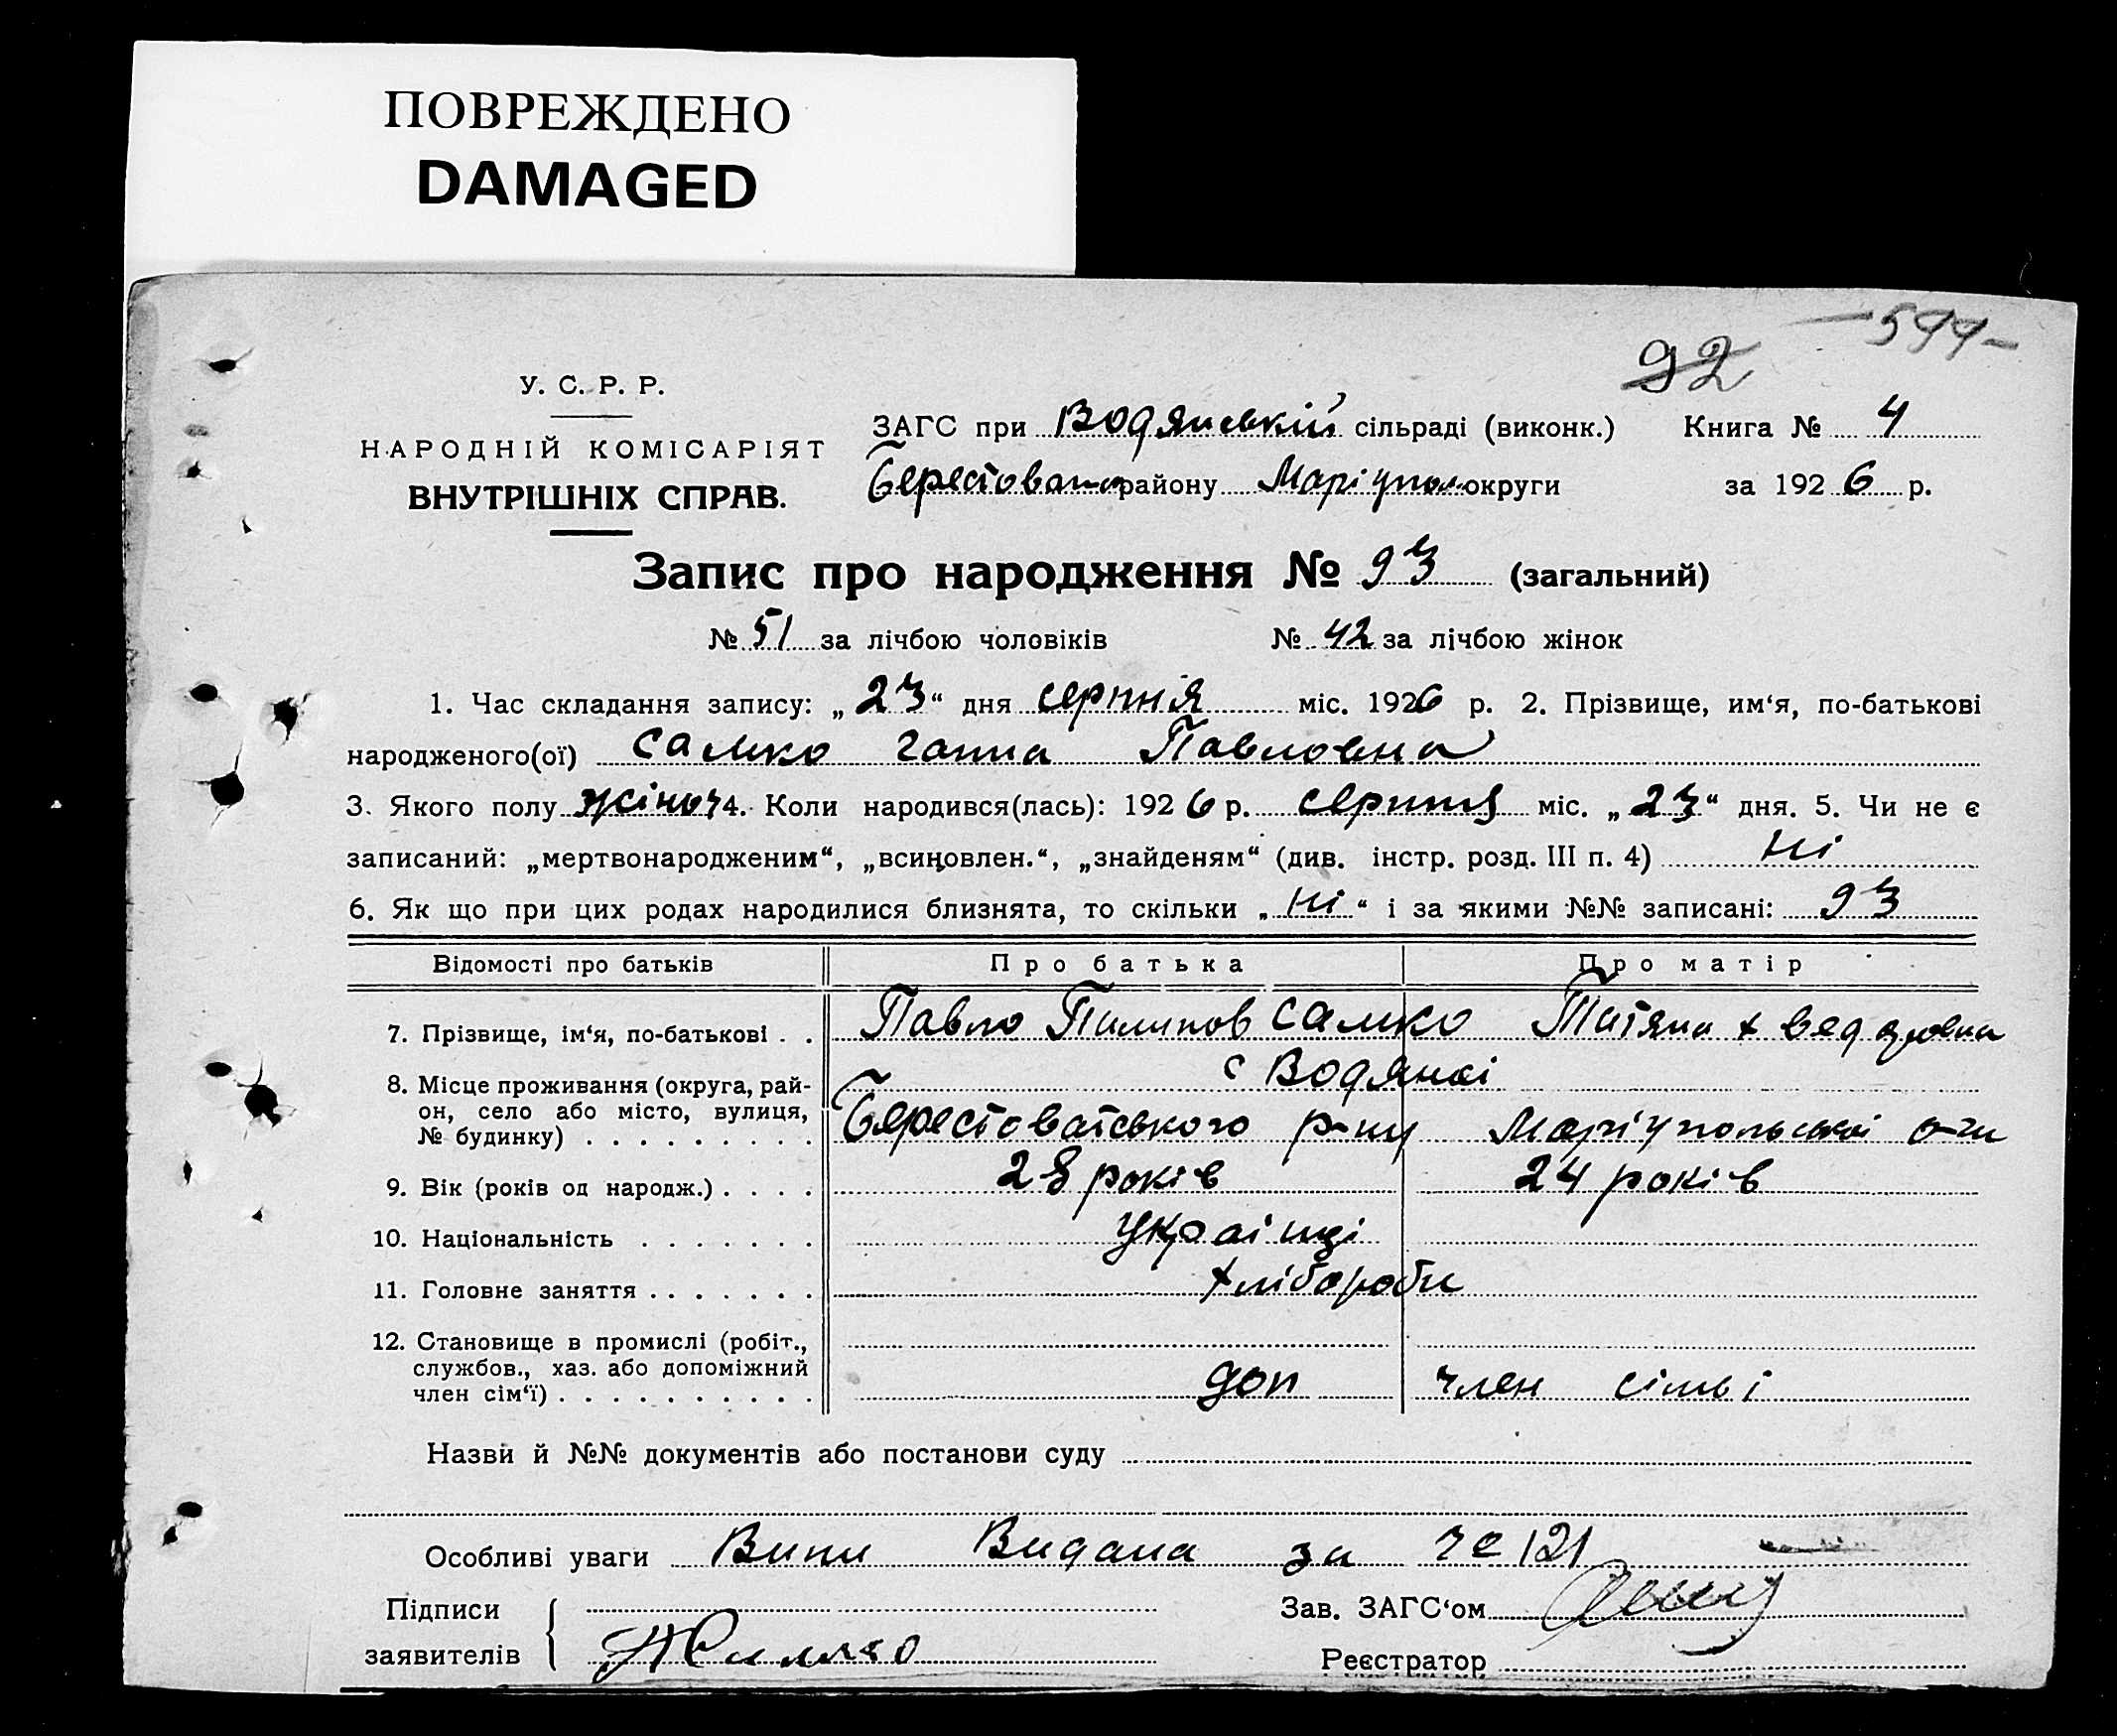 ПОВРЕЖДЕНО
DAMAGED
92 — 594 —
У. С. Р. Р.
НАРОДНІЙ КОМІСАРІЯТ
ВНУТРІШНІХ СПРАВ.
ЗАГС при Водянській сільраді (виконк.) Книга № 4
Берестоват району Маріупол округи за 1926 р.
Запис про народження № 93 (загальний)
№ 51 за лічбою чоловіків № 42 за лічбою жінок
1. Час складання запису: „23“ дня серпня міс. 1926 р. 2. Прізвище, им‘я, по-батькові
народженого(ої) Самко Ганна Павловна
3. Якого полу жіноч 4. Коли народився(лась): 1926 р. серпня міс. „23“ дня. 5. Чи не є
записаний: „мертвонародженим“, „всиновлен.“, „знайденям“ (див. інстр. розд. III п. 4) Ні
6. Як що при цих родах народилися близнята, то скільки „Ні“ і за якими №№ записані: 93
Відомості про батьків Про батька Про матір
7. Прізвище, ім‘я, по-батькові . . Павло Пилипов Самко Татяна Хведоровна
8. Місце проживання (округа, рай-
он, село або місто, вулиця,
№ будинку) . . . . . . . . . с Водяної
Берестоватського р-ну Маріупольської о-ги
9. Вік (років од народж.) . . . . 28 років 24 років
10. Національність . . . . . . . Українці
11. Головне заняття . . . . . . . хлібороби
12. Становище в промислі (робіт.,
службов., хаз. або допоміжний
член сім‘ї) . . . . . . . . . . . доп член сімьі
Назви й №№ документів або постанови суду
Особливі уваги Випи Видана за № 121
Підписи
заявителів Самко
Зав. ЗАГС‘ом
Реєстратор